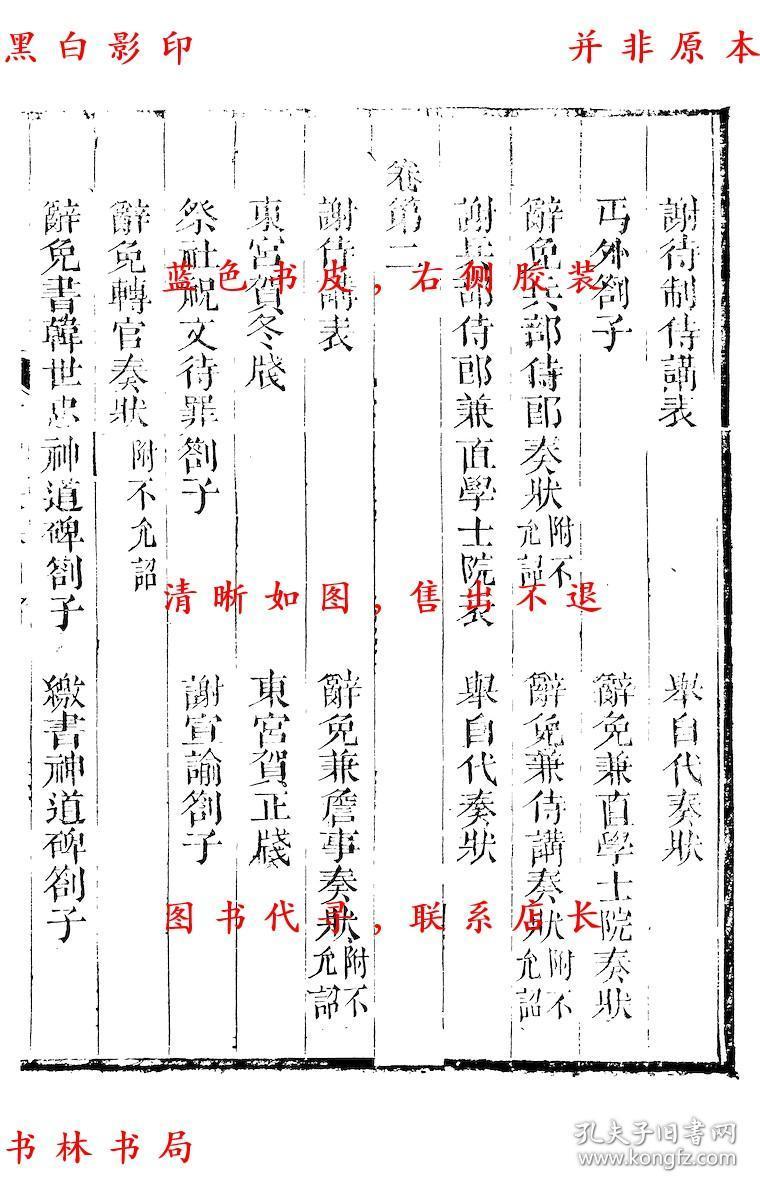 黑白影印
并非原本
謝待制侍講表
舉自代奏狀
丐外劄子
辭免兼直學士院奏狀
辭免兵部侍郎奏狀附不允詔
辭免兼侍講奏狀附不允詔
謝兵部侍郎兼直學士院表
舉自代奏狀
卷第二
謝侍講表
辭免兼詹事奏狀附不允詔
東宮賀冬牋
東宮賀正牋
祭社祝文待罪劄子
謝宣諭劄子
辭免轉官奏狀附不允詔
辭免書韓世忠神道碑劄子
繳書神道碑劄子
蓝色书皮，右侧胶装
清晰如图，售出不退
图书代录，联系店长
书林书局
孔夫子旧书网
www.kongfz.com